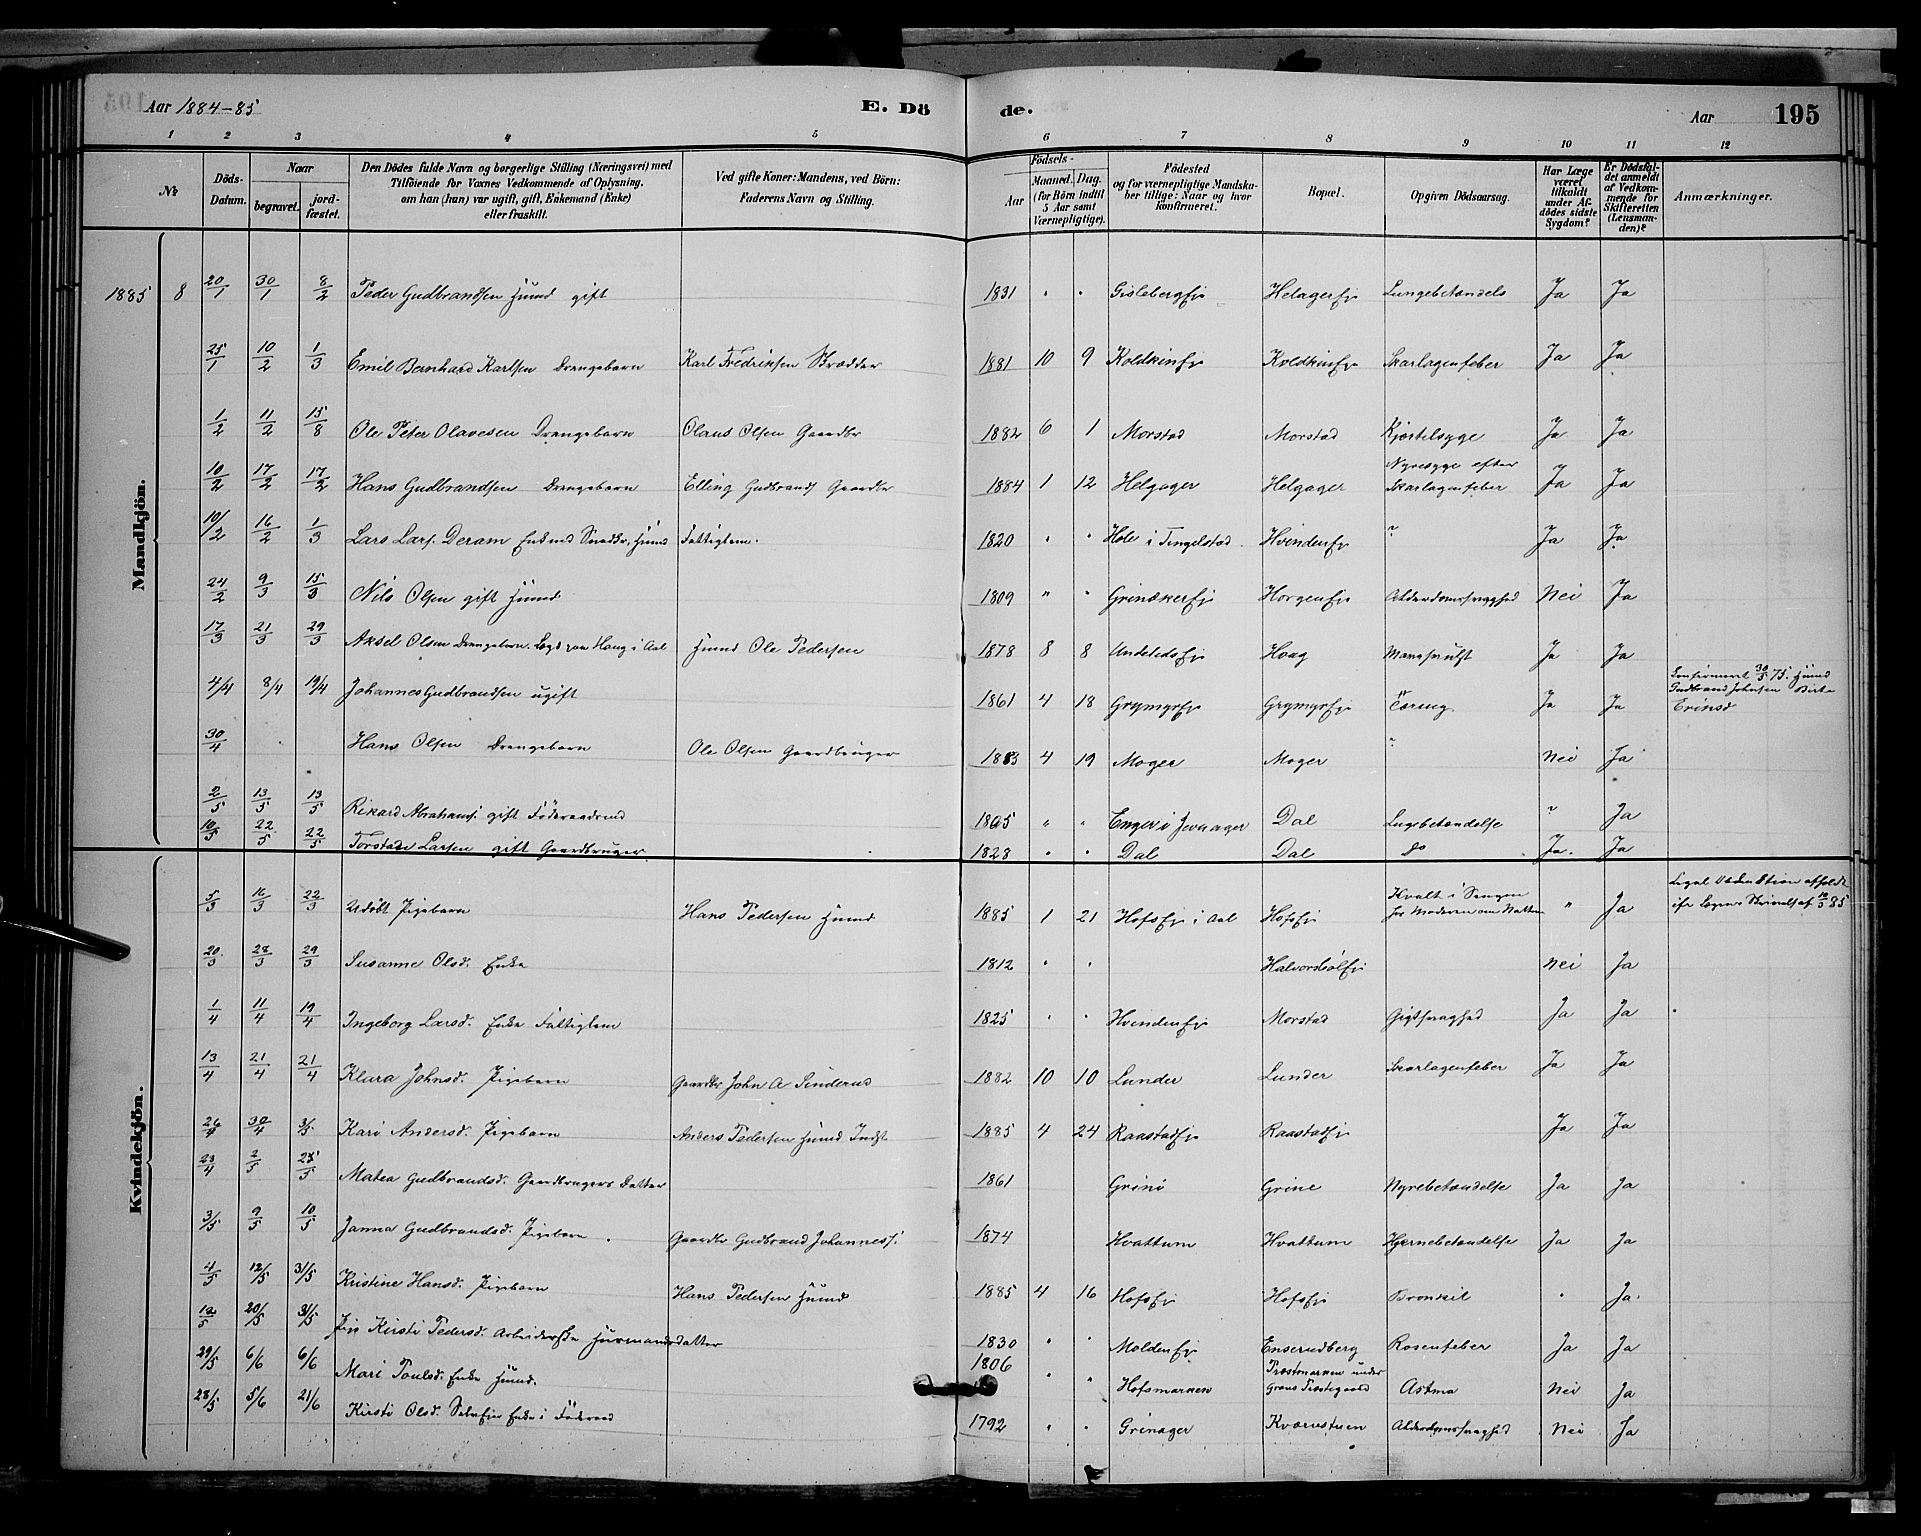 Aar 1884-85 E. Dö de. Aar 195
1 2 3 4 5 6 7 8 9 10 11 12
№ Döds-Datum. Naar begravet. jordfæstet. Den Dödes fulde Navn og borgerlige Stilling (Næringsvei) med Tilföiende for Voxnes Vedkommende af Oplysning, om han (hun) var ugift, gift, Enkemand (Enke) eller fraskilt. Ved gifte Koner: Mandens, ved Börn: Faderens Navn og Stilling. Födsels- Aar Maaned. Dag. (for Börn indtil 5 Aar samt Værnepligtige). Födested og for værnepligtige Mandskaber tillige: Naar og hvor konfirmeret. Bopæl. Opgiven Dödsaarsag. Har Læge været tilkaldt under Afdödes sidste Sygdom? Er Dödsfaldet anmeldt af Vedkommende for Skifteretten (Lensmanden)? Anmærkninger.
Mandkjön.
1885 8 20/1 30/1 8/2 Peder Gudbrandsen Husmd gift 1831 " " Gislebergej Helagerej Lungebetændels Ja Ja
25/1 10/2 1/3 Emil Bernhard Karlsen Drengebarn Karl Fredriksen Skrædder 1881 10 9 Koldkinej Koldkinej Skarlagenfeber Ja Ja
1/2 11/2 15/8 Ole Peter Olavesen Drengebarn Olaus Olsen Gaardbr 1882 6 1 Morstad Morstad Kjertelsyge Ja Ja
10/2 17/2 17/2 Hans Gudbrandsen Drengebarn Elling Gudbrands Gaardbr 1884 1 12 Helgager Helgager Nyresyge efter Skarlagenfeber Ja Ja
10/2 16/2 1/3 Lars Lars. Deram Enkmd Snedkr. Husmd Fattiglem. 1820 " " Hole i Tingelstad Hvindenej " Ja Ja
24/2 9/3 15/3 Nils Olsen gift Husmd 1809 " " Grinakerej Horgenej Alderdomssvaghed Nei Ja
17/3 21/3 29/3 Aksel Olsen Drengebarn. Lægd paa Haug i Aal Husmd Ole Pedersen 1878 8 8 Undeledsej Haag Ja Ja
4/4 8/4 19/4 Johannes Gudbrandsen ugift 1861 4 18 Grymyrej Grymyrej Tæring Ja Ja Confirmeret 30/5 75. Husmd Gudbrand Johnsen Birte Erinsd
30/4 Hans Olsen Drengebarn Ole Olsen Gaardbruger 1883 4 19 Moger Moger " Nei Ja
2/5 13/5 13/5 Rikard Abrahams. gift Föderaadsmd 1805 " " Enger i Jevnager Dal Lugebetændelse " Ja
10/5 22/5 22/5 Torstade Larsen gift Gaardbruger 1828 " " Dal Dal do Ja. Ja
Kvindekjön.
5/3 16/3 22/3 Udöbt Pigebarn Hans Pedersen Husmd 1885 1 21 Hofsej i Aal Hofsej Kvalt i Sengen før Moderen om Natten " Ja Legal Obduktion afholdt ifr Lægens Skrivelse af 12/3 85
20/3 28/3 29/3 Susanne Olsd. Enke 1812 " " Halvorsbölej Nei Ja
1/4 11/4 19/4 Ingeborg Larsd. Enke Fattiglem 1825 " " Hvindenej Morstad Gigtsvaghed Ja Ja
13/4 21/4 21/4 Klara Johnsd. Pigebarn Gaardbr John A Sinderud 1882 10 10 Lunder Lunder Skarlagenfeber Ja Ja
26/4 30/4 3/5 Kari Andersd. Pigebarn Anders Pedersen Husmd Indst 1885 4 24 Raastadej Raastadej Ja Ja
23/4 2/5 25/5 Matea Gudbrandsd. Gaardbrugers Datter 1861 Grini Grine Nyrebetændelse Ja Ja
3/5 9/5 10/5 Janna Gudbrandsd. Pigebarn Gaardbr Gudbrand Johanness. 1874 Hvattum Hvattum Hjernebetændelse Ja Ja
4/5 12/5 31/5 Kristine Hansd. Pigebarn Hans Pedersen Husmd 1885 4 16 Hofsej Hofsej Bronkit " Ja
12/5 20/5 31/5 Pige Kirsti Pedersd. Arbeiderske Husmandsdatter 1830 " " Moldenej Enserudberg Rosenfeber Ja Ja
29/5 6/6 6/6 Mari Poulsd. Enke Husmd. 1806 " " Hofsmarken Præstmarken under Grans Præstegaard Astma Nei Ja
28/5 5/6 21/6 Kirsti Olsd. Enke i Föderaad 1792 " " Grinager Kværnstuen Alderdomssvaghed Nei Ja